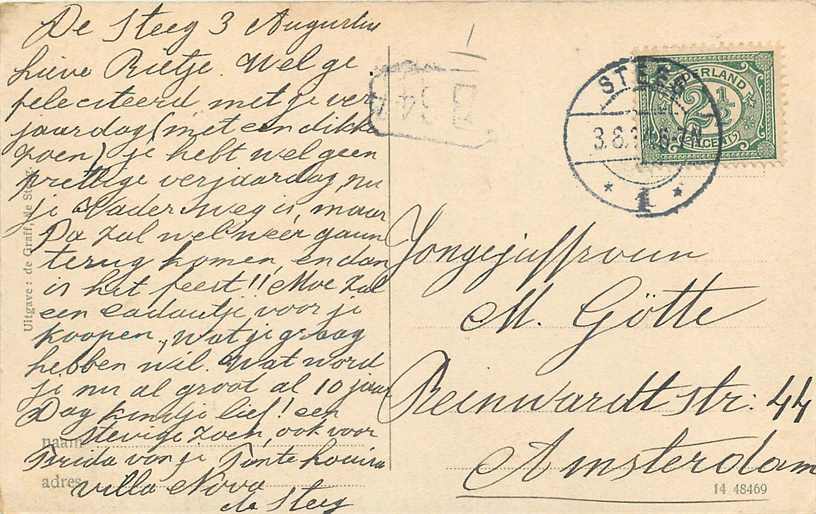 De Steeg 3 Augustus
Lieve Rietje. Wel ge
feliciteerd met je ver
jaardag (met een dikke
zoen) je hebt wel geen
prettige verjaardag, nu
je Vader weg is, maar
Pa zal wel weer gauw
terug komen, en dan
is het feest!! Moe zal
een cadautje voor je
koopen, wat je graag
hebben wil. Wat word
je nu al groot al 10 jaar
Dag kindje lief! een
stevige zoen, ook voor
Frida van je Tante Louisa
Villa Nova
de Steeg
naam
adres
Uitgave: de Graaff, de Steeg
STEEG
3.8.1
1
NEDERLAND
2½
CENT
Jongejuffrouw
M. Götte
Reinwardtstr: 44
Amsterdam
14 48469